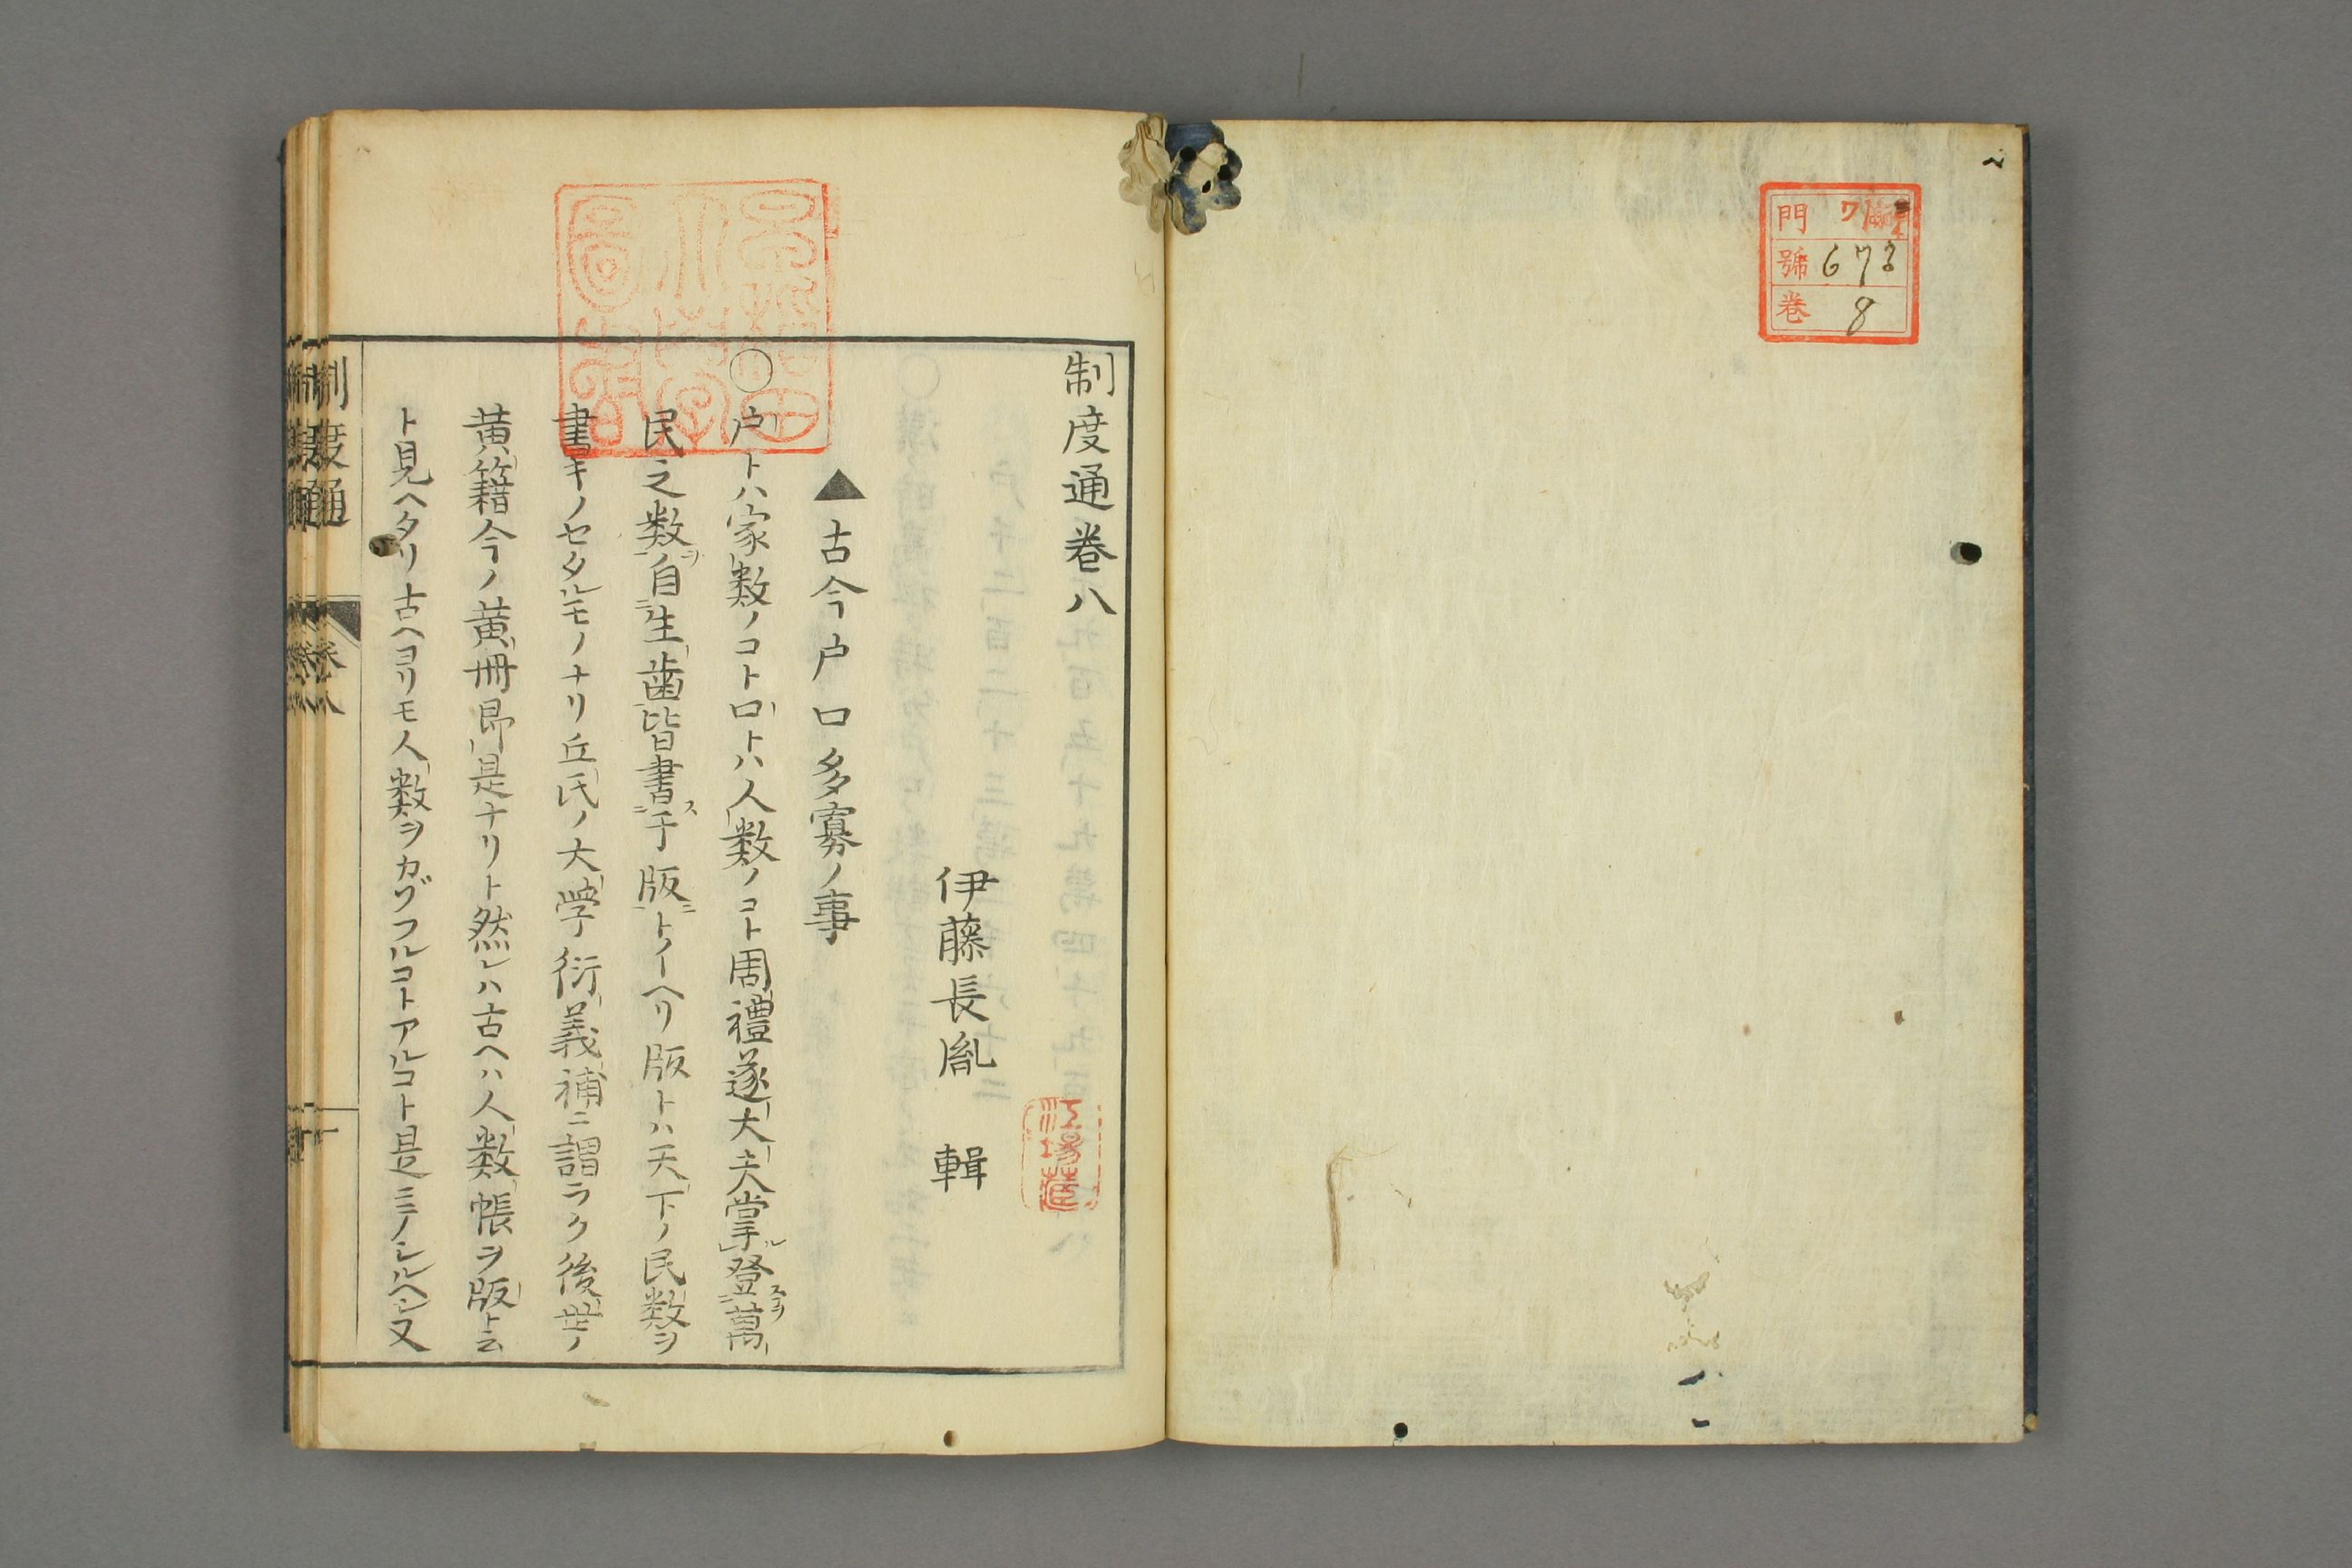 門 ワ
號 673
卷 8
制度通卷八
伊藤長胤 輯
▲古今户口多寡ノ事
○户トハ家数ノコト口トハ人数ノコト周禮遂大夫掌登萬
民之数自生齒皆書于版トイヘリ版トハ天下ノ民数ヲ
書キノセタルモノナリ丘氏ノ大學衍義補ニ謂ラク後世ノ
黄籍今ノ黄冊即是ナリト然レハ古ヘハ人数帳ヲ版ト云
ト見ヘタリ古ヘヨリモ人数ヲカゾフルコトアルコト是ニテノシルヘシ又
制度通 卷八 一